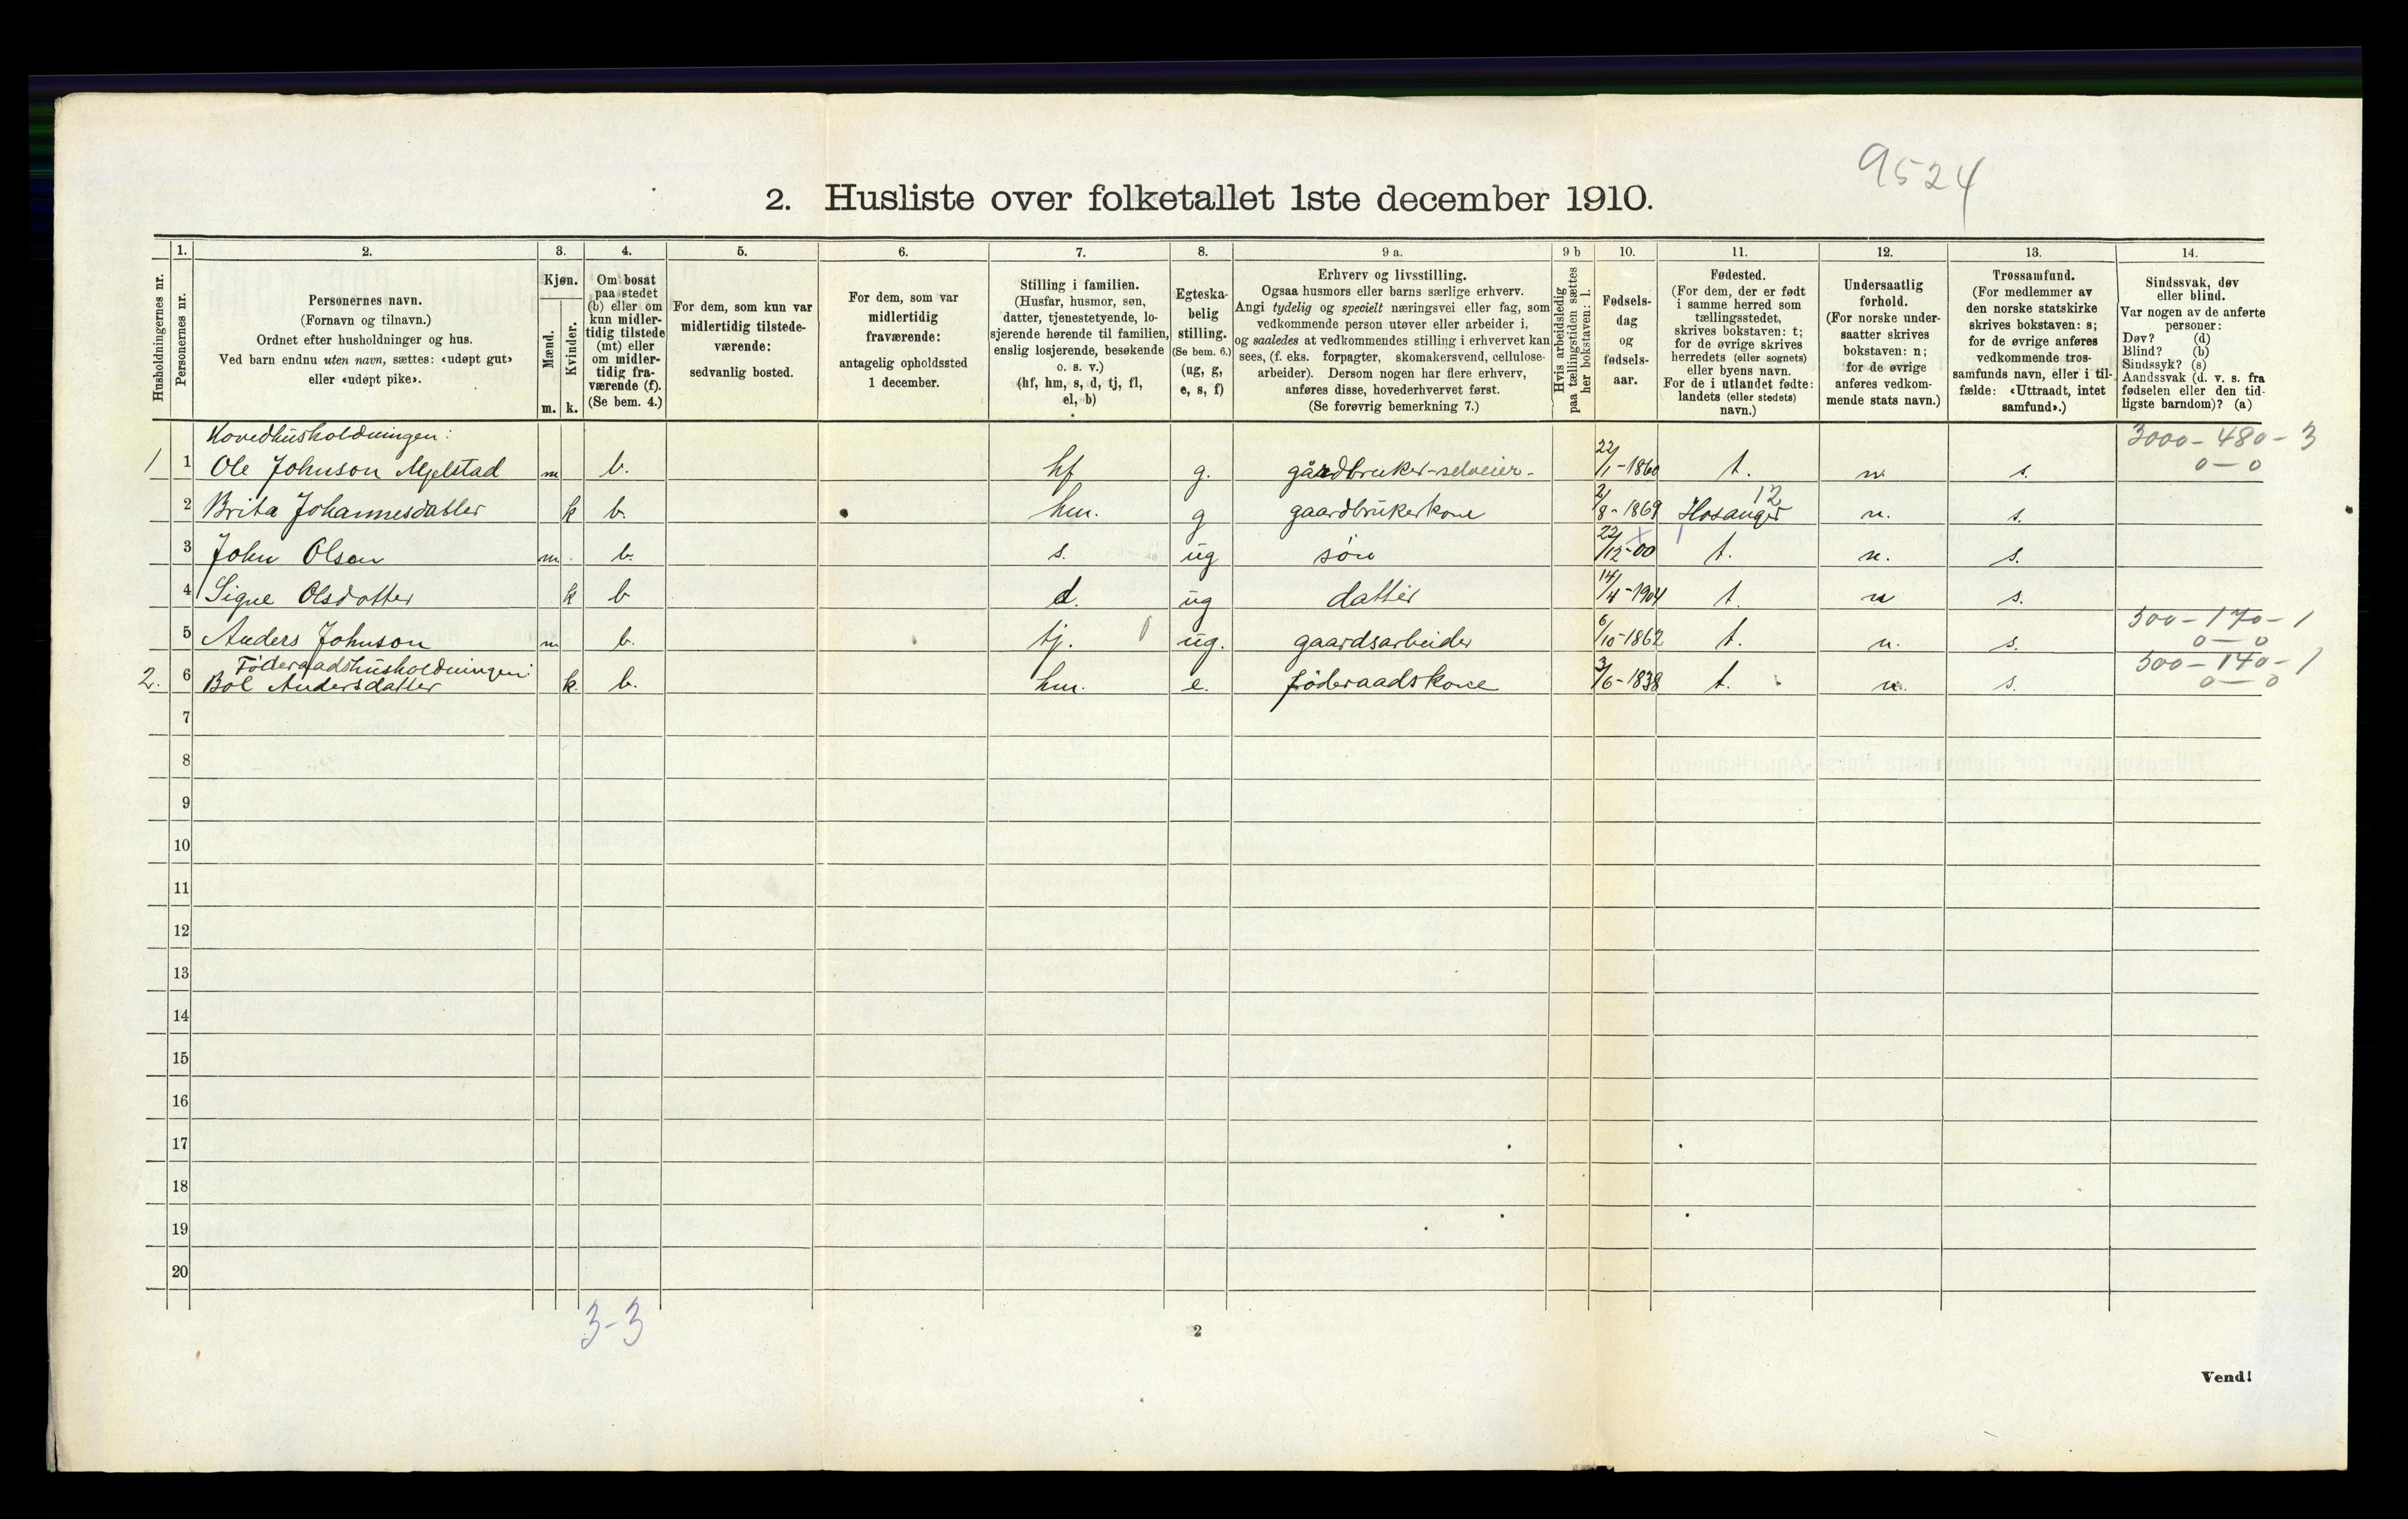 9524
2. Husliste over folketallet 1ste december 1910.
Husholdningernes nr.
1.
Personernes nr.
2.
Personernes navn.
(Fornavn og tilnavn.)
Ordnet efter husholdninger og hus.
Ved barn endnu uten navn, sættes: «udøpt gut»
eller «udøpt pike».
3.
Kjøn.
Mænd.
Kvinder.
m. k.
4.
Om bosat
paa stedet
(b) eller om
kun midler-
tidig tilstede
(mt) eller
om midler-
tidig fra-
værende (f).
(Se bem. 4.)
5.
For dem, som kun var
midlertidig tilstede-
værende:
sedvanlig bosted.
6.
For dem, som var
midlertidig
fraværende:
antagelig opholdssted
1 december.
7.
Stilling i familien.
(Husfar, husmor, søn,
datter, tjenestetyende, lo-
sjerende hørende til familien,
enslig losjerende, besøkende
o. s. v.)
(hf, hm, s, d, tj, fl,
el, b)
8.
Egteska-
belig
stilling.
(Se bem. 6.)
(ug, g,
e, s, f)
9 a.
Erhverv og livsstilling.
Ogsaa husmors eller barns særlige erhverv.
Angi tydelig og specielt næringsvei eller fag, som
vedkommende person utøver eller arbeider i,
og saaledes at vedkommendes stilling i erhvervet kan
sees, (f. eks. forpagter, skomakersvend, cellulose-
arbeider). Dersom nogen har flere erhverv,
anføres disse, hovederhvervet først.
(Se forøvrig bemerkning 7.)
9 b
Hvis arbeidsledig
paa tællingstiden sættes
her bokstaven: l.
10.
Fødsels-
dag
og
fødsels-
aar.
11.
Fødested.
(For dem, der er født
i samme herred som
tællingsstedet,
skrives bokstaven: t;
for de øvrige skrives
herredets (eller sognets)
eller byens navn.
For de i utlandet fødte:
landets (eller stedets)
navn.)
12.
Undersaatlig
forhold.
(For norske under-
saatter skrives
bokstaven: n;
for de øvrige
anføres vedkom-
mende stats navn.)
13.
Trossamfund.
(For medlemmer av
den norske statskirke
skrives bokstaven: s;
for de øvrige anføres
vedkommende tros-
samfunds navn, eller i til-
fælde: «Uttraadt, intet
samfund».)
14.
Sindssvak, døv
eller blind.
Var nogen av de anførte
personer:
Døv? (d)
Blind? (b)
Sindssyk? (s)
Aandssvak (d. v. s. fra
fødselen eller den tid-
ligste barndom)? (a)
Hovedhusholdningen:
3000-480-3
1 1 Ole Johnson Mjelstad m b. hf g. gårdbruker-selveier- 22/1-1860 t. n. s. 0-0
12
2 Brita Johannesdatter k b. hm. g gaardbrukerkone 2/8-1869 Hosanger n. s.
3 John Olsen m. b. s. ug søn 22/12-00 t. n. s.
4 Signe Olsdatter k b d. ug datter 14/4-1904 t. n s.
500-170-1
5 Anders Johnson m b. tj. 0 ug. gaardsarbeider 6/10-1862 t. n. s. 0-0
Föderaadshusholdningen:
500-140-1
2. 6 Bol Andersdatter k. b. hm. e. föderaadskone 3/6-1838 t. n. s. 0-0
7
8
9
10
11
12
13
14
15
16
17
18
19
20
3-3
2
Vend!